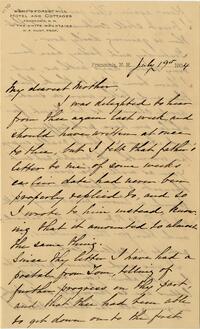 HUNT'S FOREST HILL
HOTEL AND COTTAGES
FRANCONIA, N. H.
IN THE WHITE MOUNTAINS
Franconia, N. H. July 19th 1904
My dearest Mother,
I was delighted to hear
from thee again last week and
should have written at once
to thee, but I felt that father's
letter to me of some weeks'
earlier date had never been
properly replied to, and so
I wrote to him instead, know-
ing that it amounted to almost
the same thing.
Since thy letter I have had a
postal from Tom, telling of
further progress on thy part
and that thee had been able
to get down onto the first